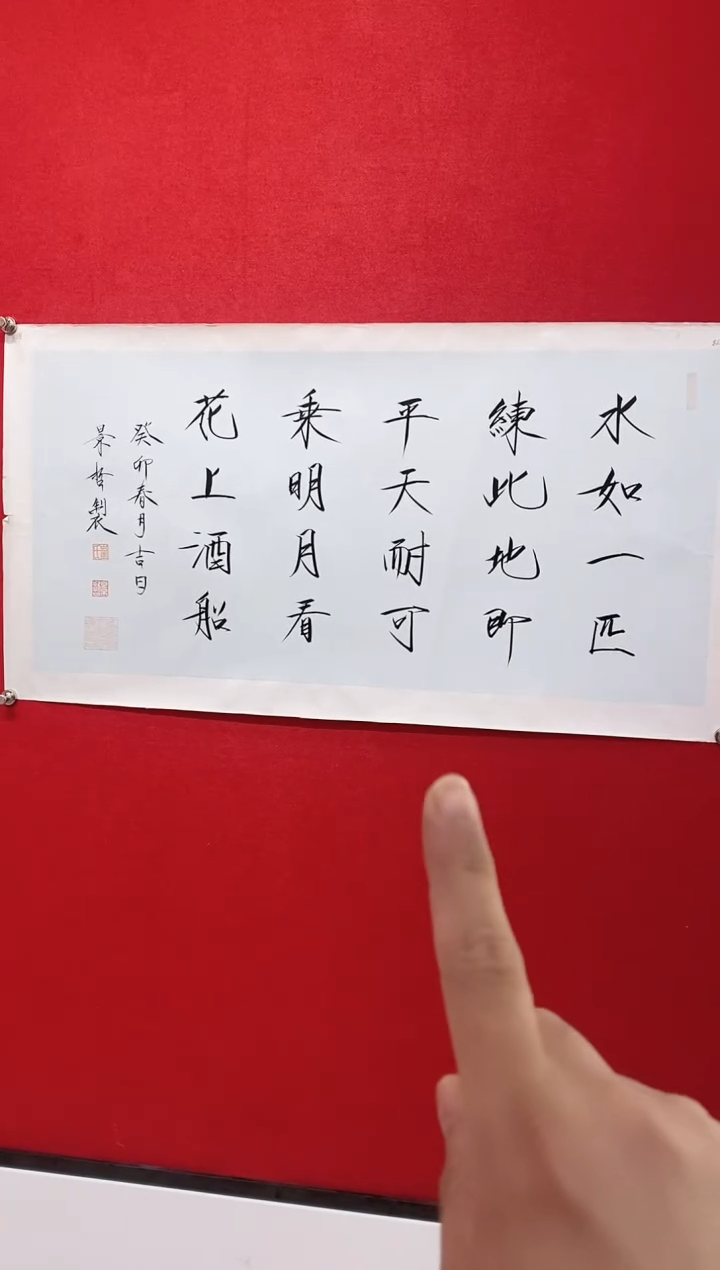 水如一匹
練此地即
平天耐可
乘明月看
花上酒船
癸卯春月吉日